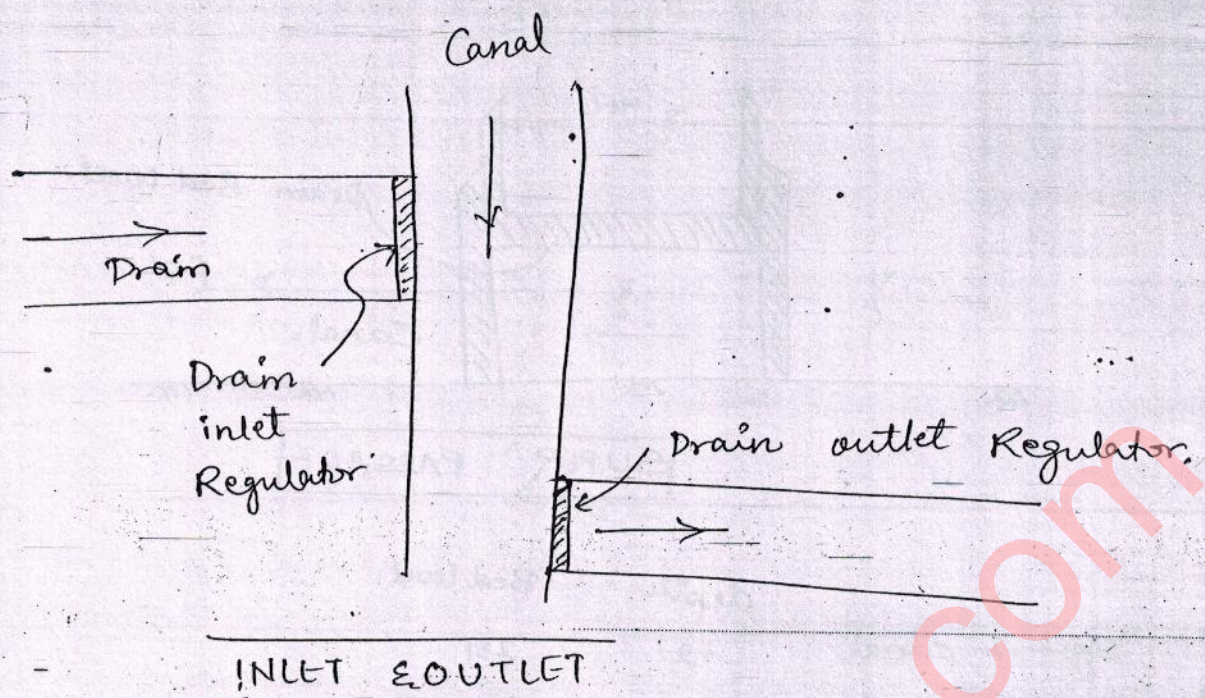 Canal
Drain
Drain
inlet
Regulator
Drain outlet Regulator.
INLET & OUTLET
com